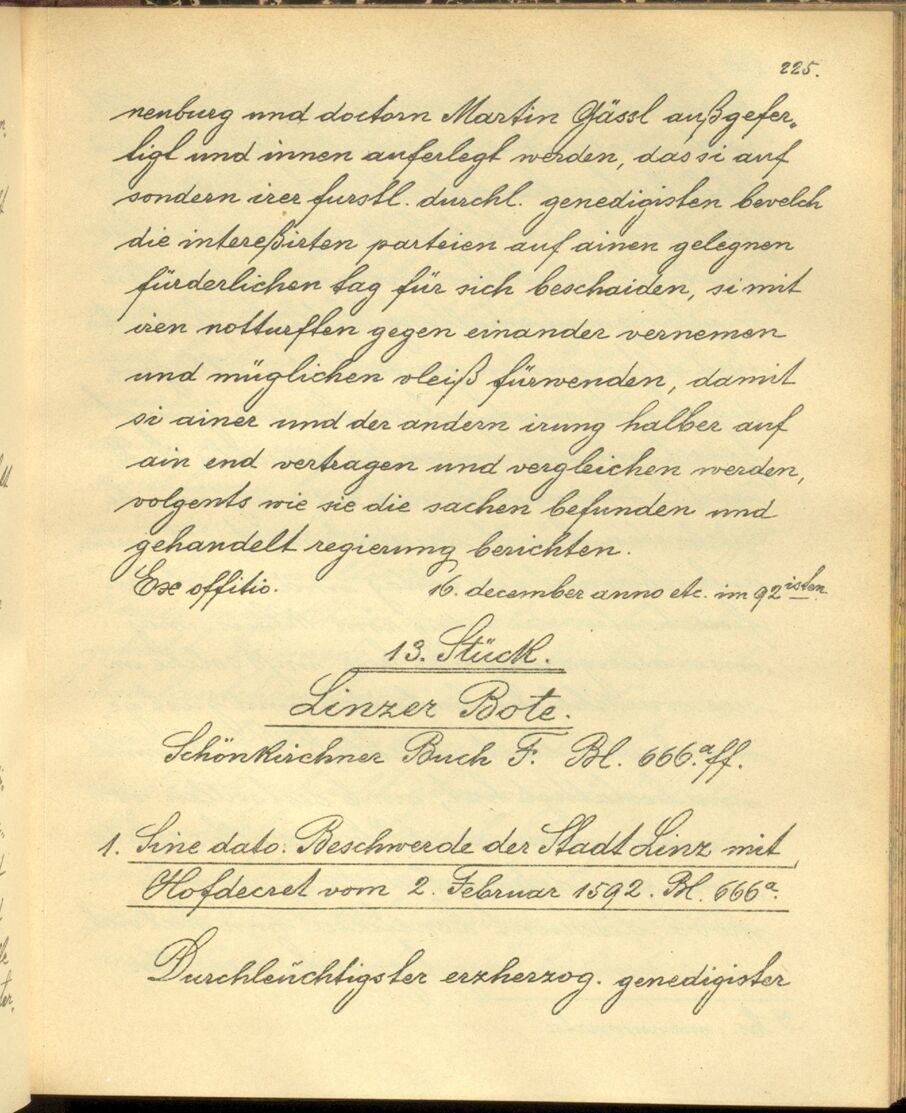 225.
nenburg und doctorn Martin Gässl außgefer„
tigt und innen auferlegt werden, das si auf
sondern irer furstl. durchl. genedigisten bevelch
die intereßirten parteien auf ainen gelegnen
fürderlichen tag für sich beschaiden, si mit
iren notturften gegen einander vernemen
und müglichen vleiß fürwenden, damit
si ainer und der andern irung halber auf
ain end vertragen und vergleichen werden,
volgents wie sie die sachen befunden und
gehandelt regierung berichten.
Ex offitio. 16. december anno etc. im 92isten
13. Stück.
Linzer Bote.
Schönkirchner Buch F. Bl. 666.a ff.
1. Sine dato. Beschwerde der Stadt Linz mit
Hofdecret vom 2. Februar 1592. Bl. 666a.
Durchleüchtigster erzherzog. genedigister